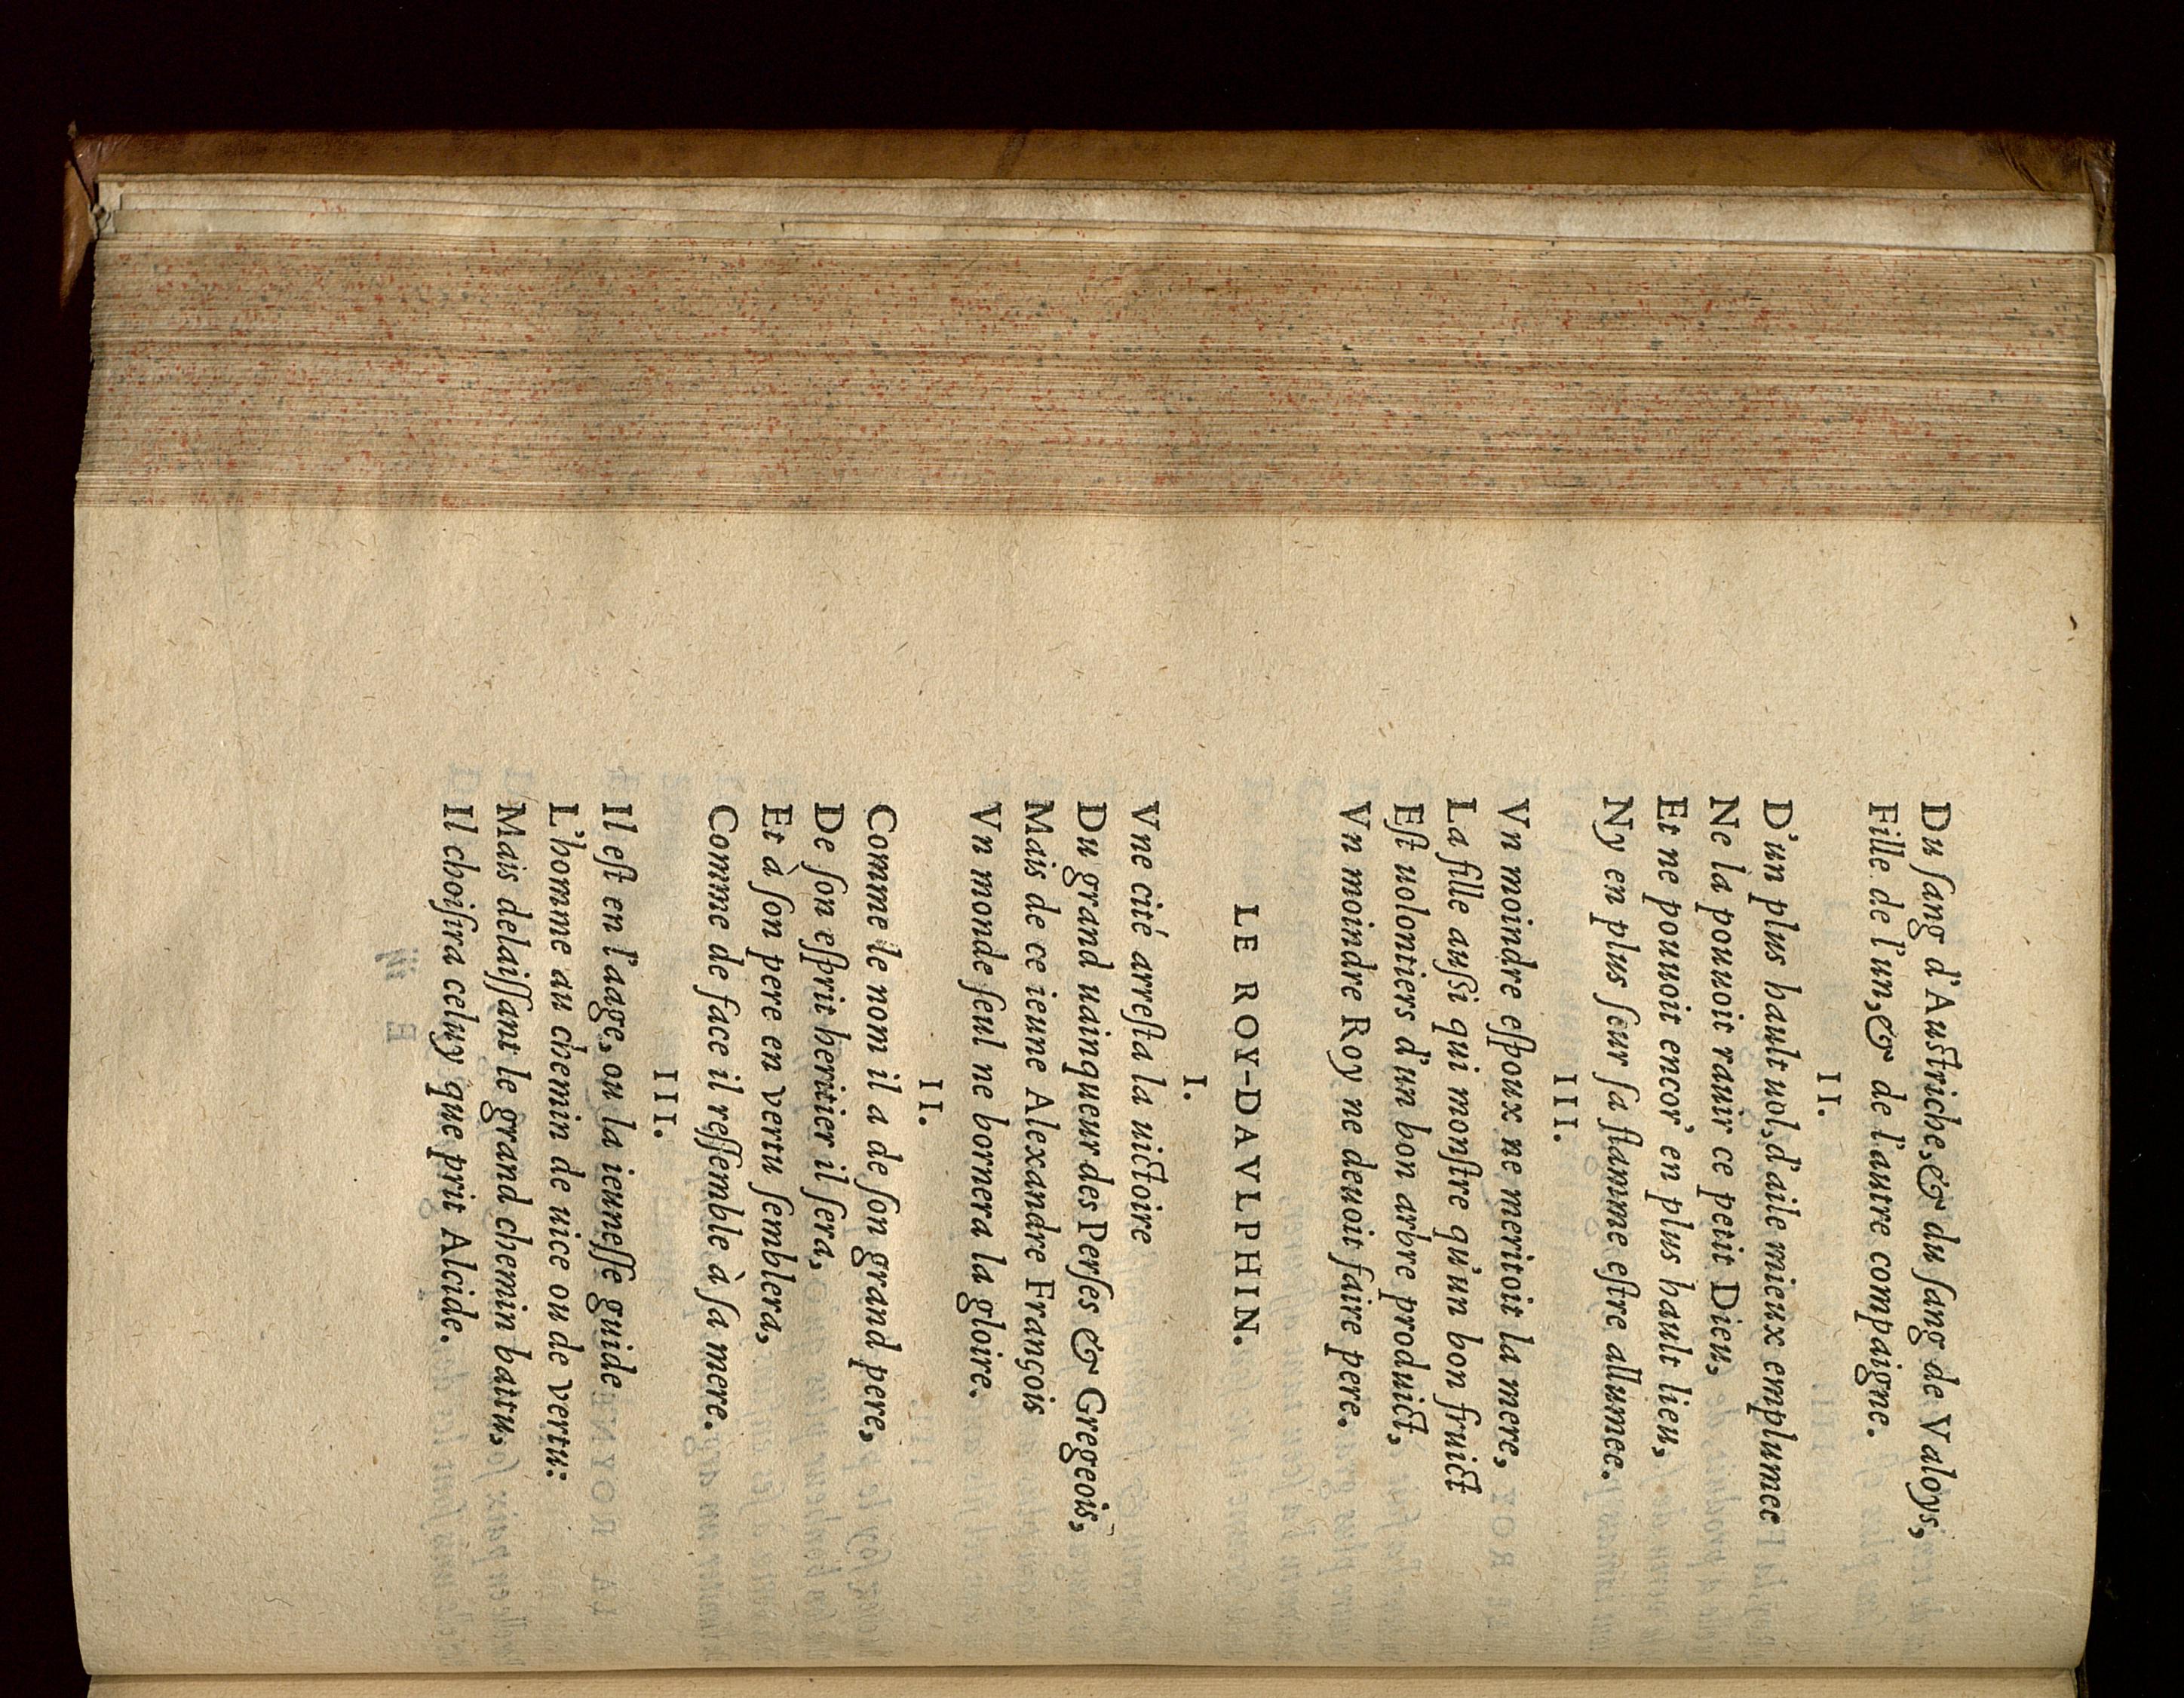 Du ſang d'Auſtriche, & du ſang de Valoys,
Fille de l'un, & de l'autre compaigne.
II.
D'un plus hault uol, d'aile mieux emplumee
Ne la pouuoit rauir ce petit Dieu,
Et ne pouuoit encor' en plus hault lieu,
Ny en plus ſeur ſa flamme eſtre allumee.
III.
Vn moindre eſpoux ne meritoit la mere,
La fille auſsi qui monſtre qu'un bon fruict
Eſt uolontiers d'un bon arbre produict,
Vn moindre Roy ne deuoit faire pere.
LE ROY-DAVLPHIN.
I.
Vne cité arreſta la uictoire
Du grand uainqueur des Perſes & Gregeois,
Mais de ce ieune Alexandre François
Vn monde ſeul ne bornera la gloire.
II.
Comme le nom il a de ſon grand pere,
De ſon eſprit heritier il ſera,
Et à ſon pere en vertu ſemblera,
Comme de face il reſſemble à ſa mere.
III.
Il eſt en l'aage, ou la ieuneſſe guide
L'homme au chemin de uice ou de vertu:
Mais delaiſſant le grand chemin batu,
Il choiſira celuy que prit Alcide.